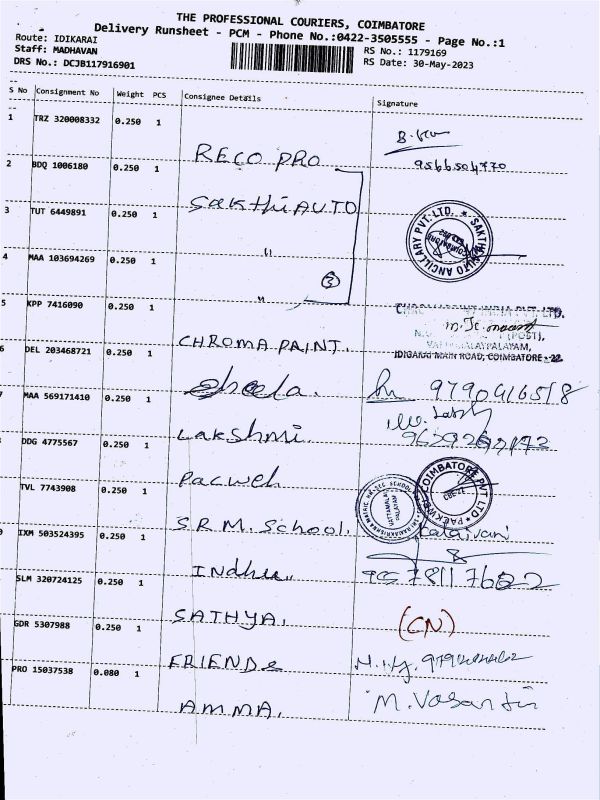 THE PROFESSIONAL COURIERS, COIMBATORE
Delivery Runsheet - PCM - Phone No.:0422-3505555 - Page No.:1
Route: IDIKARAI
RS No.: 1179169
Staff: MADHAVAN
RS Date: 30-May-2023
DRS No.: DCJB117916901
S No Consignment No Weight PCS Consignee Details Signature
1 TRZ 320008332 0.250 1
RECO PRO
9566504770
2 BDQ 1006180 0.250 1
Sakthi AUTO
3 TUT 6449891 0.250 1
"
SAKTHI AUTO ANCILLARY PVT. LTD.
4 MAA 103694269 0.250 1
3
"
5 KPP 7416090 0.250 1
CHROMA PAINT.
IDIGARAI MAIN ROAD, COIMBATORE - 22.
6 DEL 203468721 0.250 1
Sheela.
7 MAA 569171410 0.250 1
Lakshmi.
DDG 4775567 0.250 1
Pacweh
COIMBATORE PVT LTD
TVL 7743908 0.250 1
S.R.M. School.
Kalaivani
IXM 503524395 0.250 1
Indhu
SLM 320724125 0.250 1
SATHYA.
(CN)
GDR 5307988 0.250 1
FRIENDs
PRO 15037538 0.080 1
AMMA.
M. Vasanthi